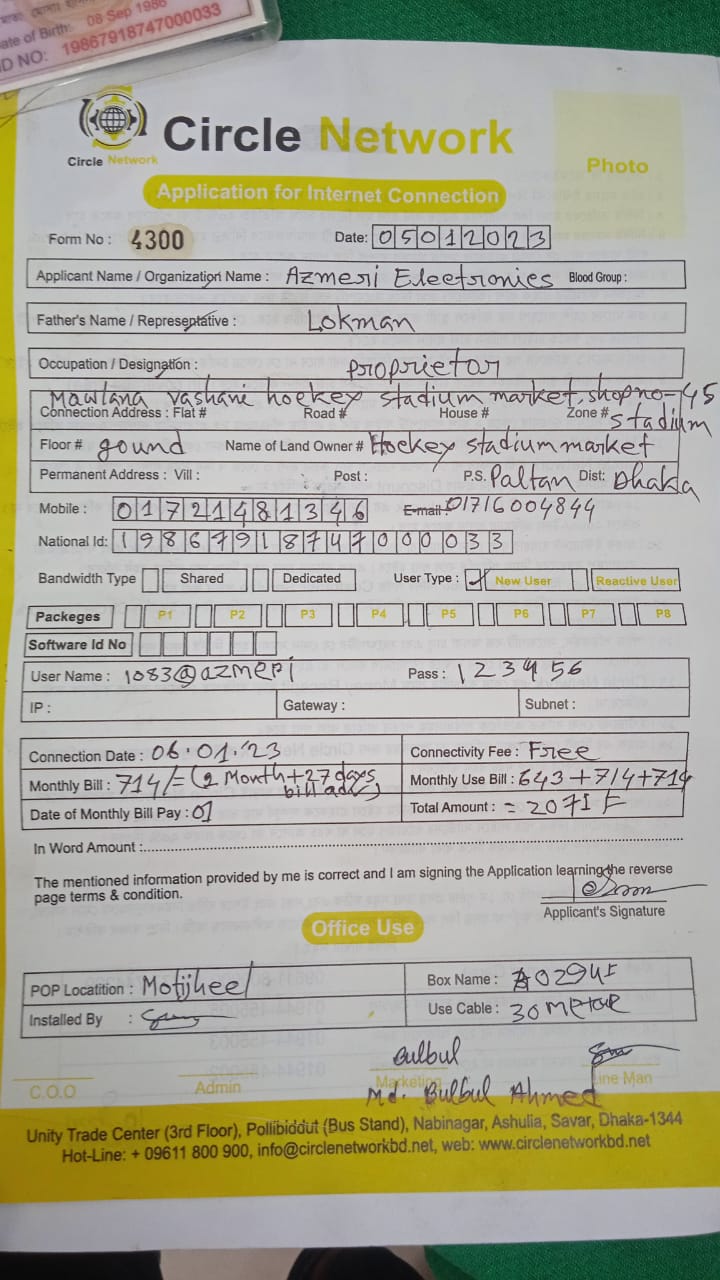 08 Sep 1986
ate of Birth:
ID NO: 19867918747000033
Circle Network
Circle Network
Photo
Application for Internet Connection
Form No : 4300 Date: 05012023
Applicant Name / Organization Name : Azmeri Electronics Blood Group :
Father's Name / Representative : Lokman
Occupation / Designation : proprietor
Mawlana vashani hockey stadium market, shop no-45
Connection Address : Flat # Road # House # Zone # stadium
Floor # gound Name of Land Owner # Hockey stadium market
Permanent Address : Vill : Post : P.S. Paltan Dist: Dhaka
Mobile : 01721481346 E-mail 01716004844
National Id: 19867918747000033
Bandwidth Type Shared Dedicated User Type : ✓ New User Reactive User
Packeges P1 P2 P3 P4 P5 P6 P7 P8
Software Id No
User Name : 1083@azmeri Pass : 123456
IP : Gateway : Subnet :
Connection Date : 06.01.'23 Connectivity Fee : Free
Monthly Bill : 714/= (2 Month+27 days Monthly Use Bill : 643+714+714
bill adv)
Date of Monthly Bill Pay : 01 Total Amount : = 2071/=
In Word Amount :
The mentioned information provided by me is correct and I am signing the Application learning the reverse
page terms & condition.
Applicant's Signature
Office Use
POP Locatition : Motijheel Box Name :
Installed By : Use Cable : 30 Metar
Bulbul
C.O.O Admin Marketing Line Man
Md. Bulbul Ahmed
Unity Trade Center (3rd Floor), Pollibiddut (Bus Stand), Nabinagar, Ashulia, Savar, Dhaka-1344
Hot-Line: + 09611 800 900, info@circlenetworkbd.net, web: www.circlenetworkbd.net